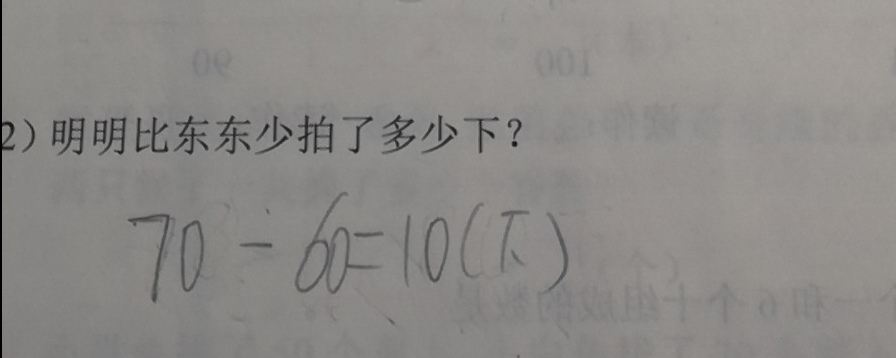 2）明明比东东少拍了多少下？
70－60=10（下）